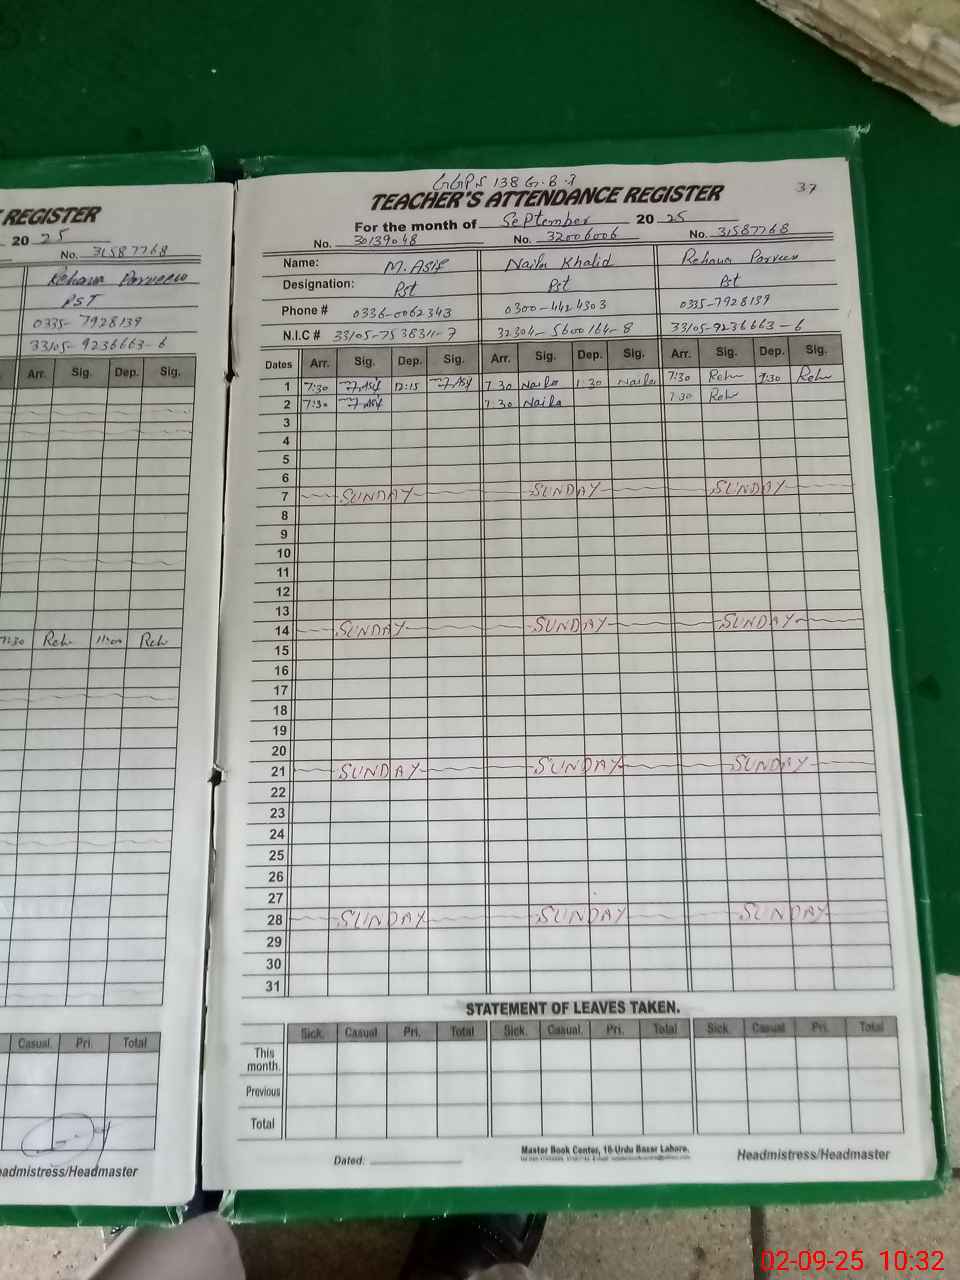 REGISTER
20 25
No. 31587768
Rehana Parveen
PST
0335-7928139
33105-9236663-6
Arr. Sig. Dep. Sig.
7:30 Reh 11:00 Reh
Casual. Pri. Total
eadmistress/Headmaster
GGPS 138 G.B.
37
TEACHER'S ATTENDANCE REGISTER
For the month of September 20 25
No. 30139048 No. 32006006 No. 31587768
Name: M. Asif Naila Khalid Rehana Parveen
Designation: Pst Pst Pst
Phone # 0336-0062343 0300-4424303 0335-7928139
N.I.C # 33105-7538311-7 32304-5600164-8 33105-9236663-6
Dates Arr. Sig. Dep. Sig. Arr. Sig. Dep. Sig. Arr. Sig. Dep. Sig.
1 7:30 Asif 12:15 Asif 7:30 Naila 1:30 Naila 7:30 Reh 9:30 Reh
2 7:30 Asif 7:30 Naila 7:30 Reh
3
4
5
6
7 SUNDAY SUNDAY SUNDAY
8
9
10
11
12
13
14 SUNDAY SUNDAY SUNDAY
15
16
17
18
19
20
21 SUNDAY SUNDAY SUNDAY
22
23
24
25
26
27
28 SUNDAY SUNDAY SUNDAY
29
30
31
STATEMENT OF LEAVES TAKEN.
Sick. Casual. Pri. Total Sick. Casual. Pri. Total Sick. Casual Pri. Total
This month.
Previous
Total
Dated:
Master Book Center, 16-Urdu Bazar Lahore.
Headmistress/Headmaster
02-09-25 10:32